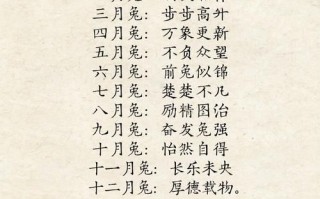 三月兔：步步高升
四月兔：万象更新
五月兔：不负众望
六月兔：前兔似锦
七月兔：楚楚不凡
八月兔：励精图治
九月兔：奋发兔强
十月兔：怡然自得
十一月兔：长乐未央
十二月兔：厚德载物。